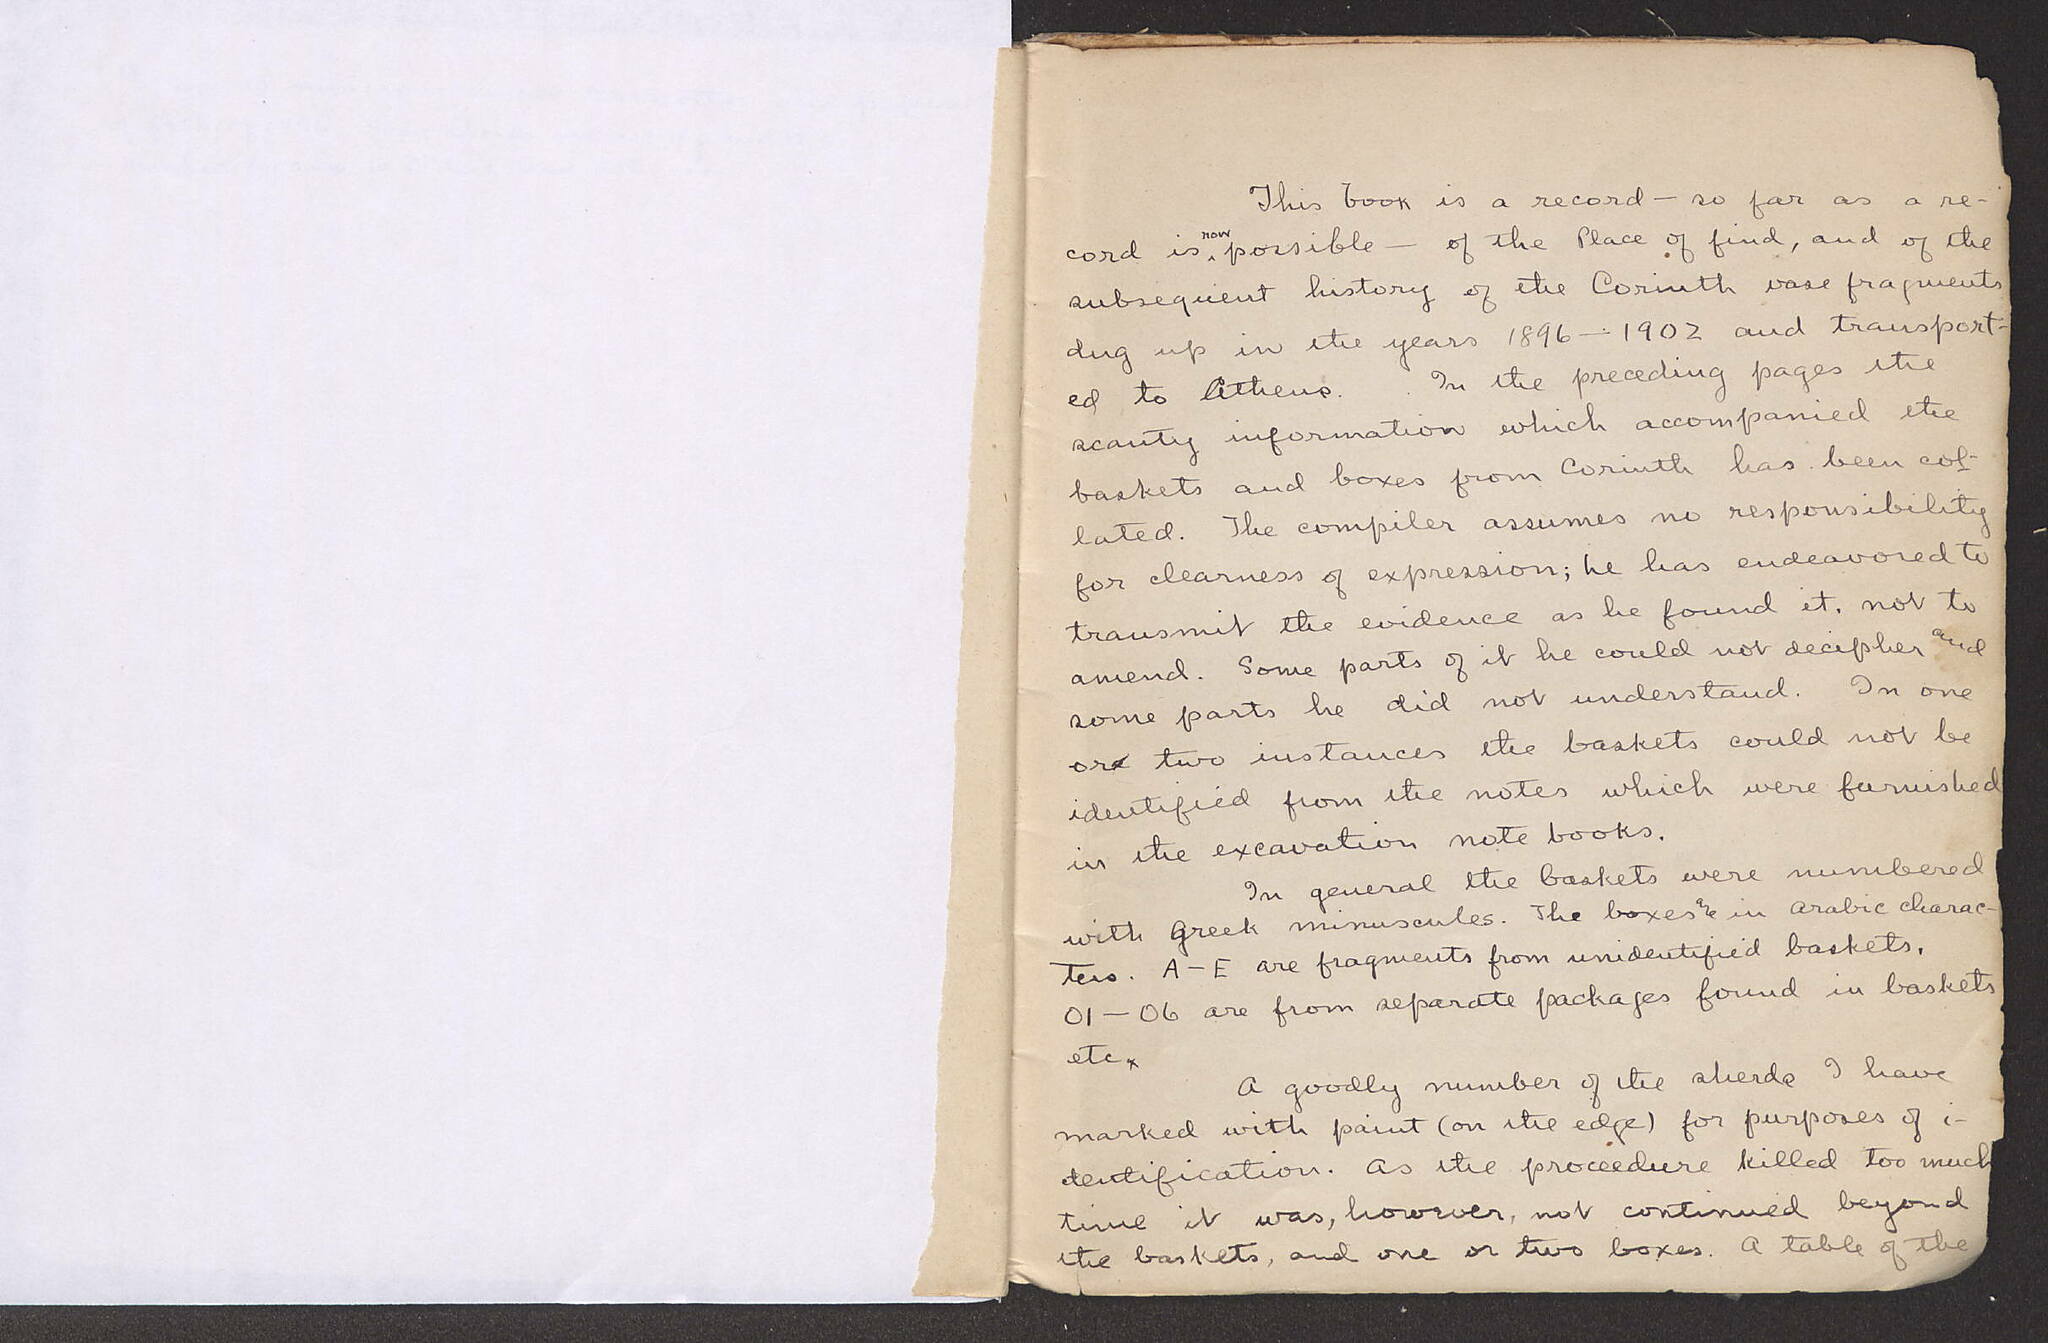 This book is a record — so far as a re-
cord is now possible — of the Place of find, and of the
subsequent history of the Corinth vase fragments
dug up in the years 1896 — 1902 and transport-
ed to Athens. In the preceding pages the
scanty information which accompanied the
baskets and boxes from Corinth has been col-
lated. The compiler assumes no responsibility
for clearness of expression; he has endeavored to
transmit the evidence as he found it, not to
amend. Some parts of it he could not decipher and
some parts he did not understand. In one
or two instances the baskets could not be
identified from the notes which were furnished
in the excavation note books.
In general the baskets were numbered
with Greek minuscules. The boxes are in arabic charac-
ters. A — E are fragments from unidentified baskets.
01 — 06 are from separate packages found in baskets
etc.
A goodly number of the sherds I have
marked with paint (on the edge) for purposes of i-
dentification. As the proceedure killed too much
time it was, however, not continued beyond
the baskets, and one or two boxes. A table of the